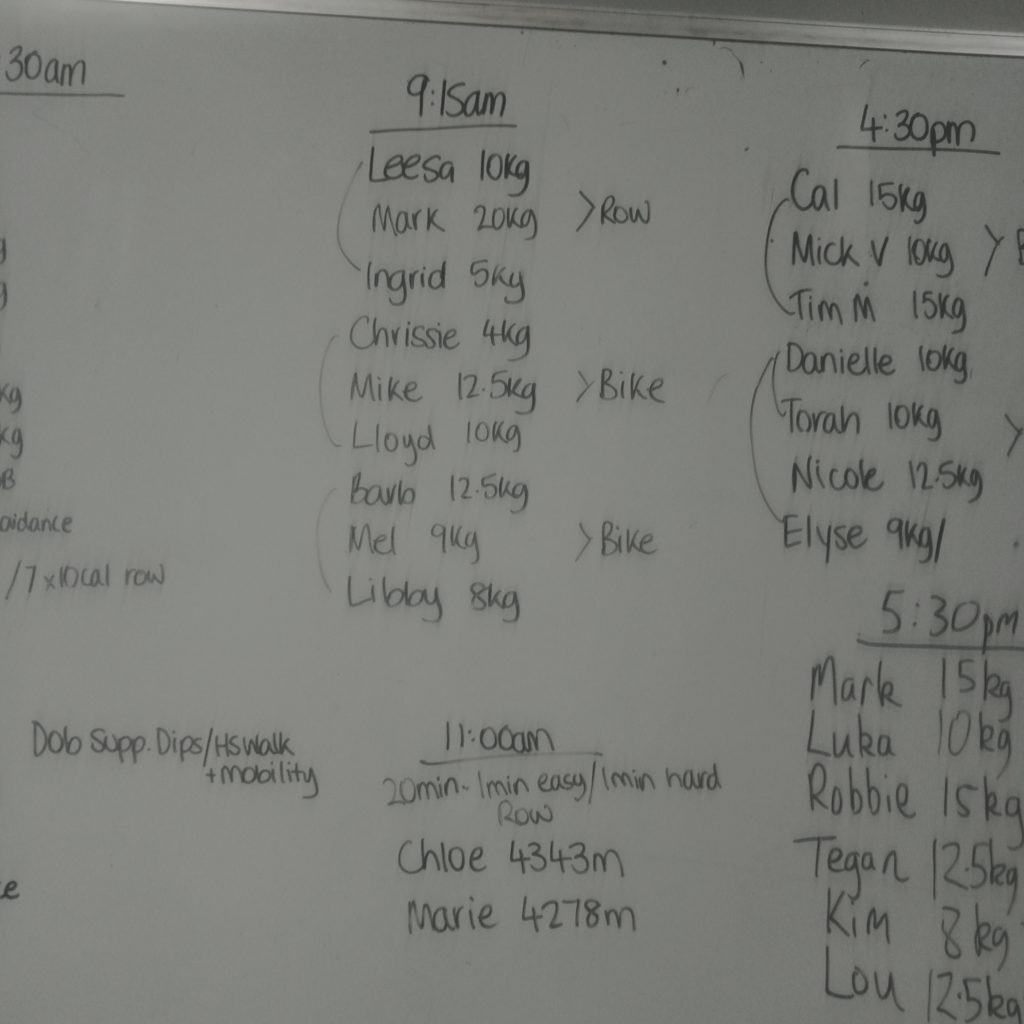 30am
g
g
kg
kg
B
oidance
/7 x 10cal row
Dob Supp. Dips/HSWalk
+mobility
e
9:15am
Leesa 10kg
Mark 20kg >Row
Ingrid 5kg
Chrissie 4kg
Mike 12.5kg >Bike
Lloyd 10kg
Barb 12.5kg
Mel 9kg >Bike
Libby 8kg
11:00am
20min - 1min easy/1min hard
Row
Chloe 4343m
Marie 4278m
4:30pm
Cal 15kg
Mick V 10kg >B
Tim M 15kg
Danielle 10kg
Torah 10kg >
Nicole 12.5kg
Elyse 9kg/
5:30pm
Mark 15kg
Luka 10kg
Robbie 15kg
Tegan 12.5kg
Kim 8kg
Lou 12.5kg